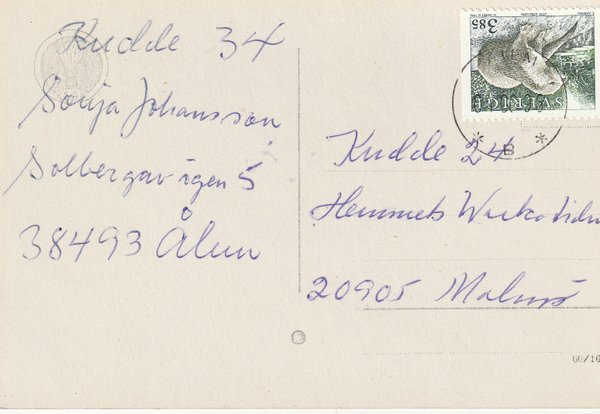 Kudde 34
Sonja Johansson
Solbergavägen 5
38493 Ålem
SVERIGE
385
B
Kudde 24
Hemmets
20905 Malmö
GO/16